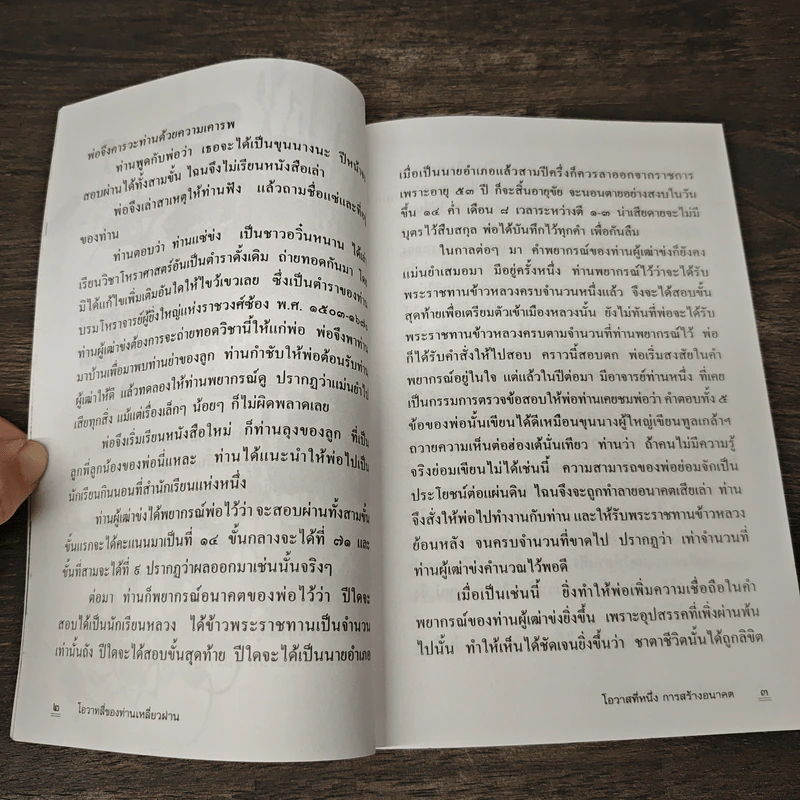 พ่อจึงคารวะท่านด้วยความเคารพ
ท่านพูดกับพ่อว่า เธอจะได้เป็นขุนนางนะ ปีหน้า
สอบผ่านได้ทั้งสามขั้น ไฉนจึงไม่เรียนหนังสือเล่า
พ่อจึงเล่าสาเหตุให้ท่านฟัง แล้วถามชื่อแซ่และที่
ของท่าน
ท่านตอบว่า ท่านแซ่ข่ง เป็นชาวอวิ๋นหนาน ได้
เรียนวิชาโหราศาสตร์อันเป็นตำราดั้งเดิม ถ่ายทอดกันมา โดย
มิได้แก้ไขเพิ่มเติมอันใดให้ไขว้เขวเลย ซึ่งเป็นตำราของท่าน
บรมโหราจารย์ผู้ยิ่งใหญ่แห่งราชวงศ์ซ้อง พ.ศ. ๑๕๐๓-๑๖๘๐
ท่านผู้เฒ่าข่งต้องการจะถ่ายทอดวิชานี้ให้แก่พ่อ พ่อจึงพาท่าน
มาบ้านเพื่อมาพบท่านย่าของลูก ท่านกำชับให้พ่อต้อนรับท่าน
ผู้เฒ่าให้ดี แล้วทดลองให้ท่านพยากรณ์ดู ปรากฏว่าแม่นยำไป
เสียทุกสิ่ง แม้แต่เรื่องเล็กๆ น้อยๆ ก็ไม่ผิดพลาดเลย
พ่อจึงเริ่มเรียนหนังสือใหม่ ก็ท่านลุงของลูก ที่เป็น
ลูกพี่ลูกน้องของพ่อนี่แหละ ท่านได้แนะนำให้พ่อไปเป็น
นักเรียนกินนอนที่สำนักเรียนแห่งหนึ่ง
ท่านผู้เฒ่าข่งได้พยากรณ์พ่อไว้ว่า จะสอบผ่านทั้งสามขั้น
ขั้นแรกจะได้คะแนนมาเป็นที่ ๑๔ ขั้นกลางจะได้ที่ ๗๑ และ
ขั้นที่สามจะได้ที่ ๙ ปรากฏว่าผลออกมาเช่นนั้นจริงๆ
ต่อมา ท่านก็พยากรณ์อนาคตของพ่อไว้ว่า ปีใดจะ
สอบได้เป็นนักเรียนหลวง ได้ข้าวพระราชทานเป็นจำนวน
เท่านั้นถัง ปีใดจะได้สอบขั้นสุดท้าย ปีใดจะได้เป็นนายอำเภอ
๒ โอวาทสี่ของท่านเหลี่ยวฝาน
เมื่อเป็นนายอำเภอแล้วสามปีครึ่งก็ควรลาออกจากราชการ
เพราะอายุ ๕๓ ปี ก็จะสิ้นอายุขัย จะนอนตายอย่างสงบในวัน
ขึ้น ๑๔ ค่ำ เดือน ๘ เวลาระหว่างตี ๑-๓ น่าเสียดายจะไม่มี
บุตรไว้สืบสกุล พ่อได้บันทึกไว้ทุกคำ เพื่อกันลืม
ในกาลต่อๆ มา คำพยากรณ์ของท่านผู้เฒ่าข่งก็ยังคง
แม่นยำเสมอมา มีอยู่ครั้งหนึ่ง ท่านพยากรณ์ไว้ว่าจะได้รับ
พระราชทานข้าวหลวงครบจำนวนหนึ่งแล้ว จึงจะได้สอบขั้น
สุดท้ายเพื่อเตรียมตัวเข้าเมืองหลวงนั้น ยังไม่ทันที่พ่อจะได้รับ
พระราชทานข้าวหลวงครบตามจำนวนที่ท่านพยากรณ์ไว้ พ่อ
ก็ได้รับคำสั่งให้ไปสอบ คราวนี้สอบตก พ่อเริ่มสงสัยในคำ
พยากรณ์อยู่ในใจ แต่แล้วในปีต่อมา มีอาจารย์ท่านหนึ่ง ที่เคย
เป็นกรรมการตรวจข้อสอบให้พ่อท่านเคยชมพ่อว่า คำตอบทั้ง ๕
ข้อของพ่อนั้นเขียนได้ดีเหมือนขุนนางผู้ใหญ่เขียนทูลเกล้าฯ
ถวายความเห็นต่อฮ่องเต้นั่นเทียว ท่านว่า ถ้าคนไม่มีความรู้
จริงย่อมเขียนไม่ได้เช่นนี้ ความสามารถของพ่อย่อมจักเป็น
ประโยชน์ต่อแผ่นดิน ไฉนจึงจะถูกทำลายอนาคตเสียเล่า ท่าน
จึงสั่งให้พ่อไปทำงานกับท่าน และให้รับพระราชทานข้าวหลวง
ย้อนหลัง จนครบจำนวนที่ขาดไป ปรากฏว่า เท่าจำนวนที่
ท่านผู้เฒ่าข่งคำนวณไว้พอดี
เมื่อเป็นเช่นนี้ ยิ่งทำให้พ่อเพิ่มความเชื่อถือในคำ
พยากรณ์ของท่านผู้เฒ่าข่งยิ่งขึ้น เพราะอุปสรรคที่เพิ่งผ่านพ้น
ไปนั้น ทำให้เห็นได้ชัดเจนยิ่งขึ้นว่า ชาตาชีวิตนั้นได้ถูกลิขิต
โอวาสที่หนึ่ง การสร้างอนาคต ๓